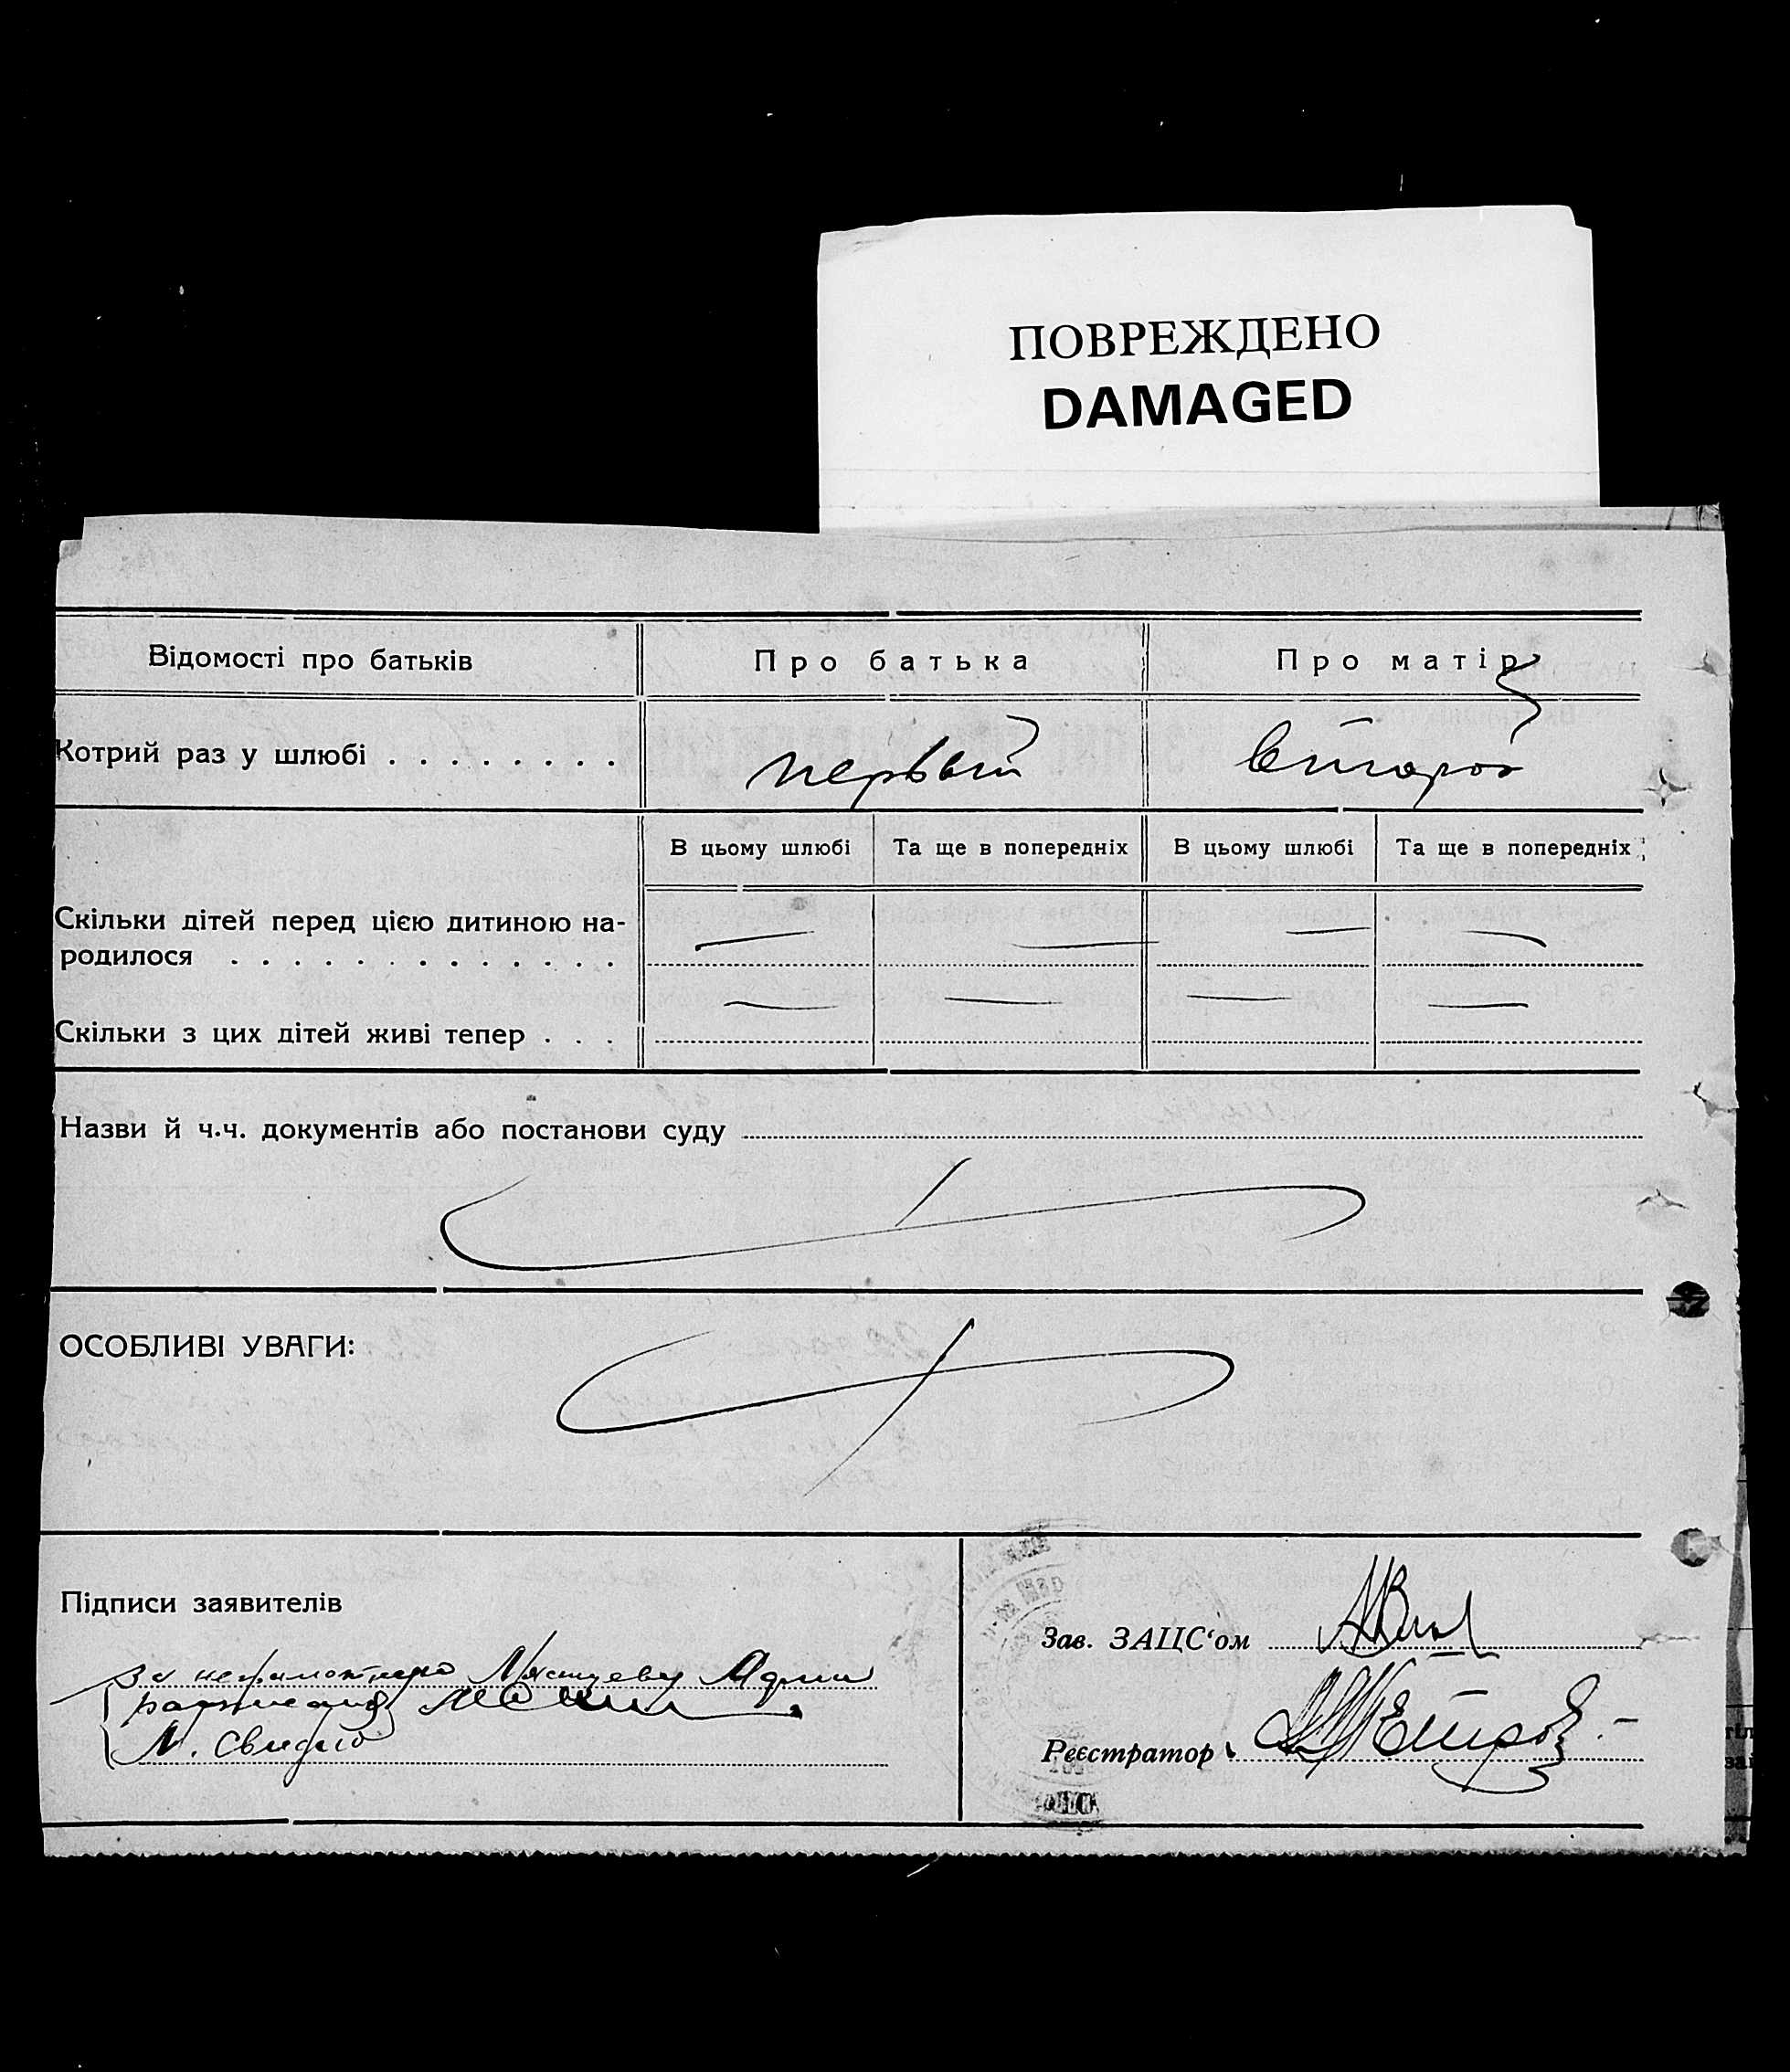 ПОВРЕЖДЕНО
DAMAGED
Відомості про батьків
Про батька
Про матір
Котрий раз у шлюбі . . . . . . . .
первый
второй
В цьому шлюбі
Та ще в попередніх
В цьому шлюбі
Та ще в попередніх
Скільки дітей перед цією дитиною на-
родилося . . . . . . . . . . . . .
— — — —
Скільки з цих дітей живі тепер . . .
— — — —
Назви й ч.ч. документів або постанови суду
ОСОБЛИВІ УВАГИ:
Підписи заявителів
За
Зав. ЗАЦС‘ом
Реєстратор